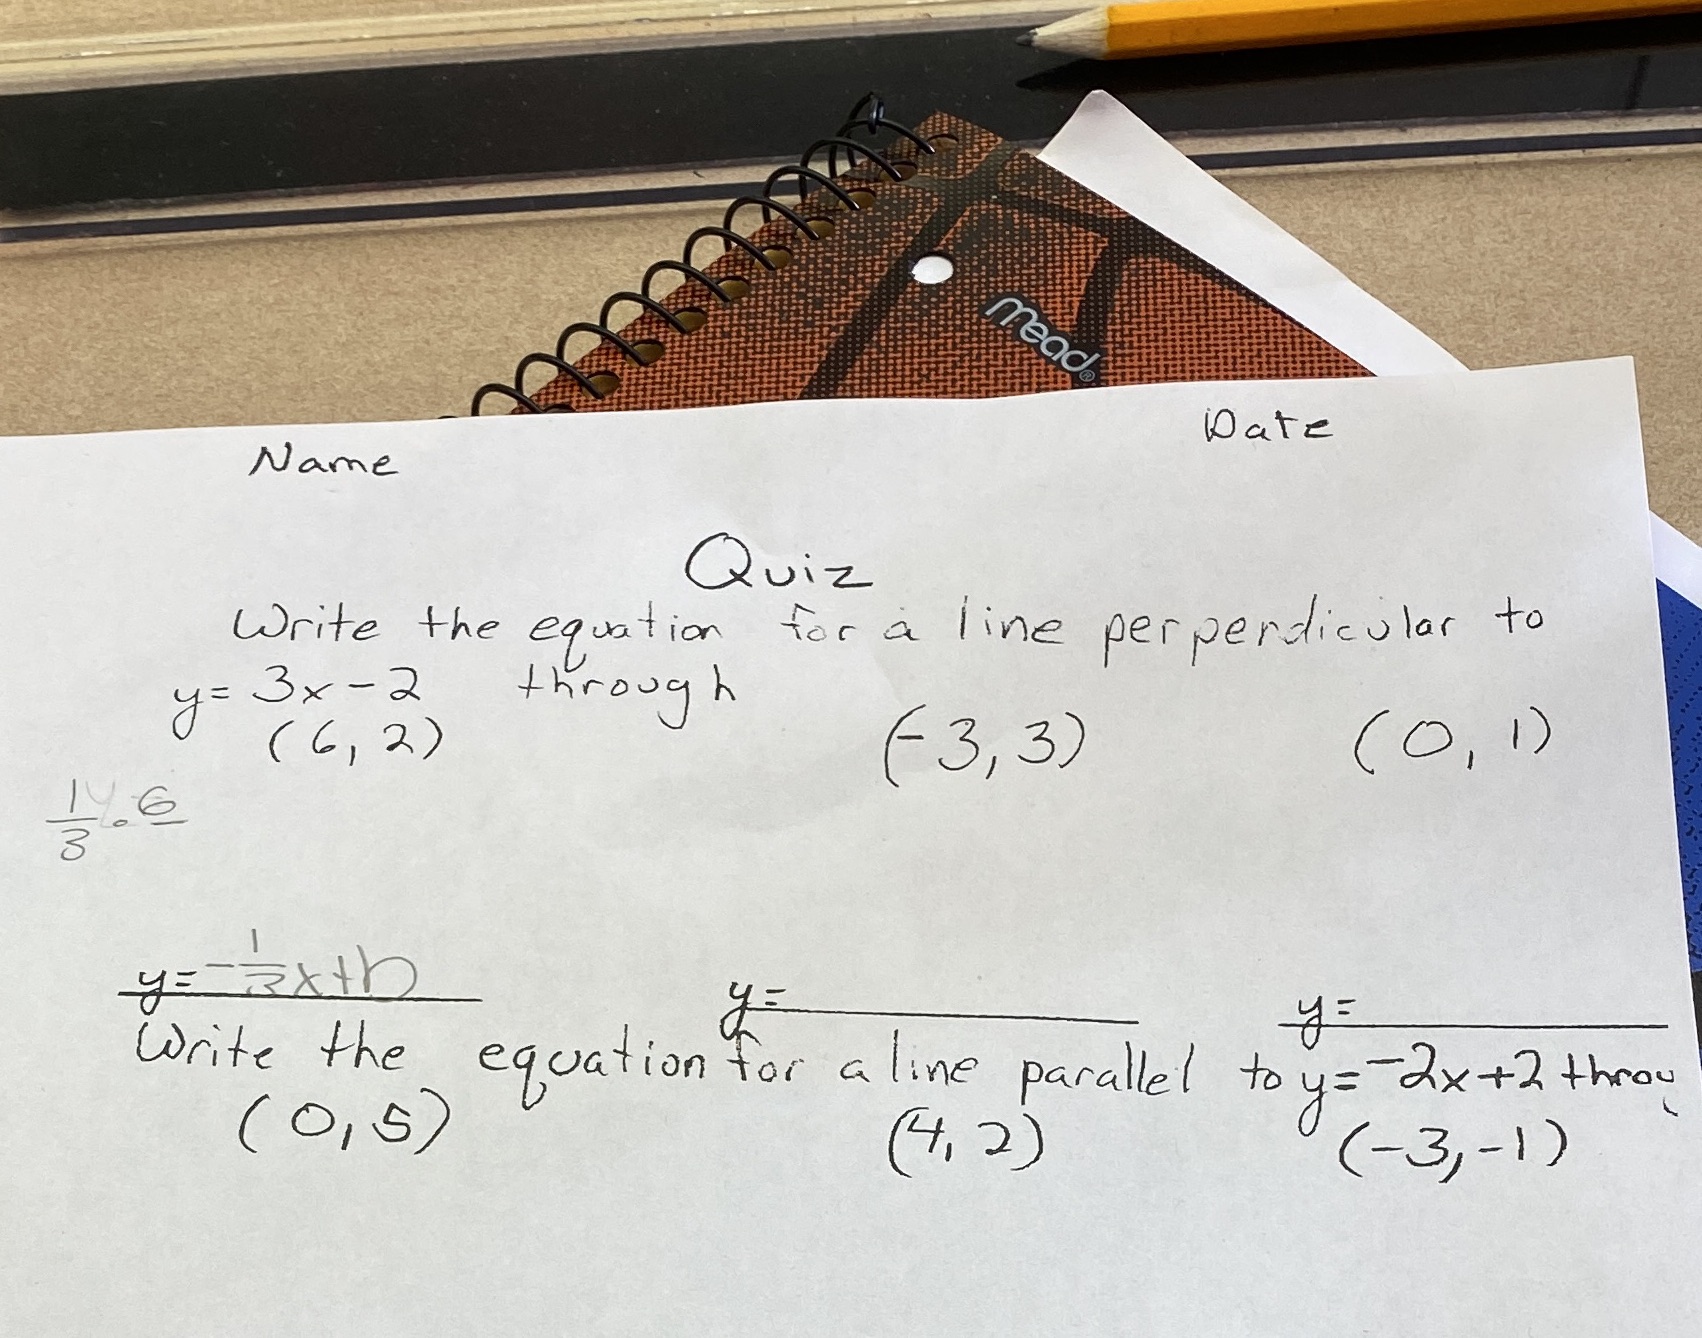 mead®
Name Date
Quiz
Write the equation for a line perpendicular to
y= 3x-2 through
(6, 2) (-3, 3) (0, 1)
1/3 . 6
y= -1/3x+b y= y=
Write the equation for a line parallel to y= -2x+2 throu
(0, 5) (4, 2) (-3, -1)